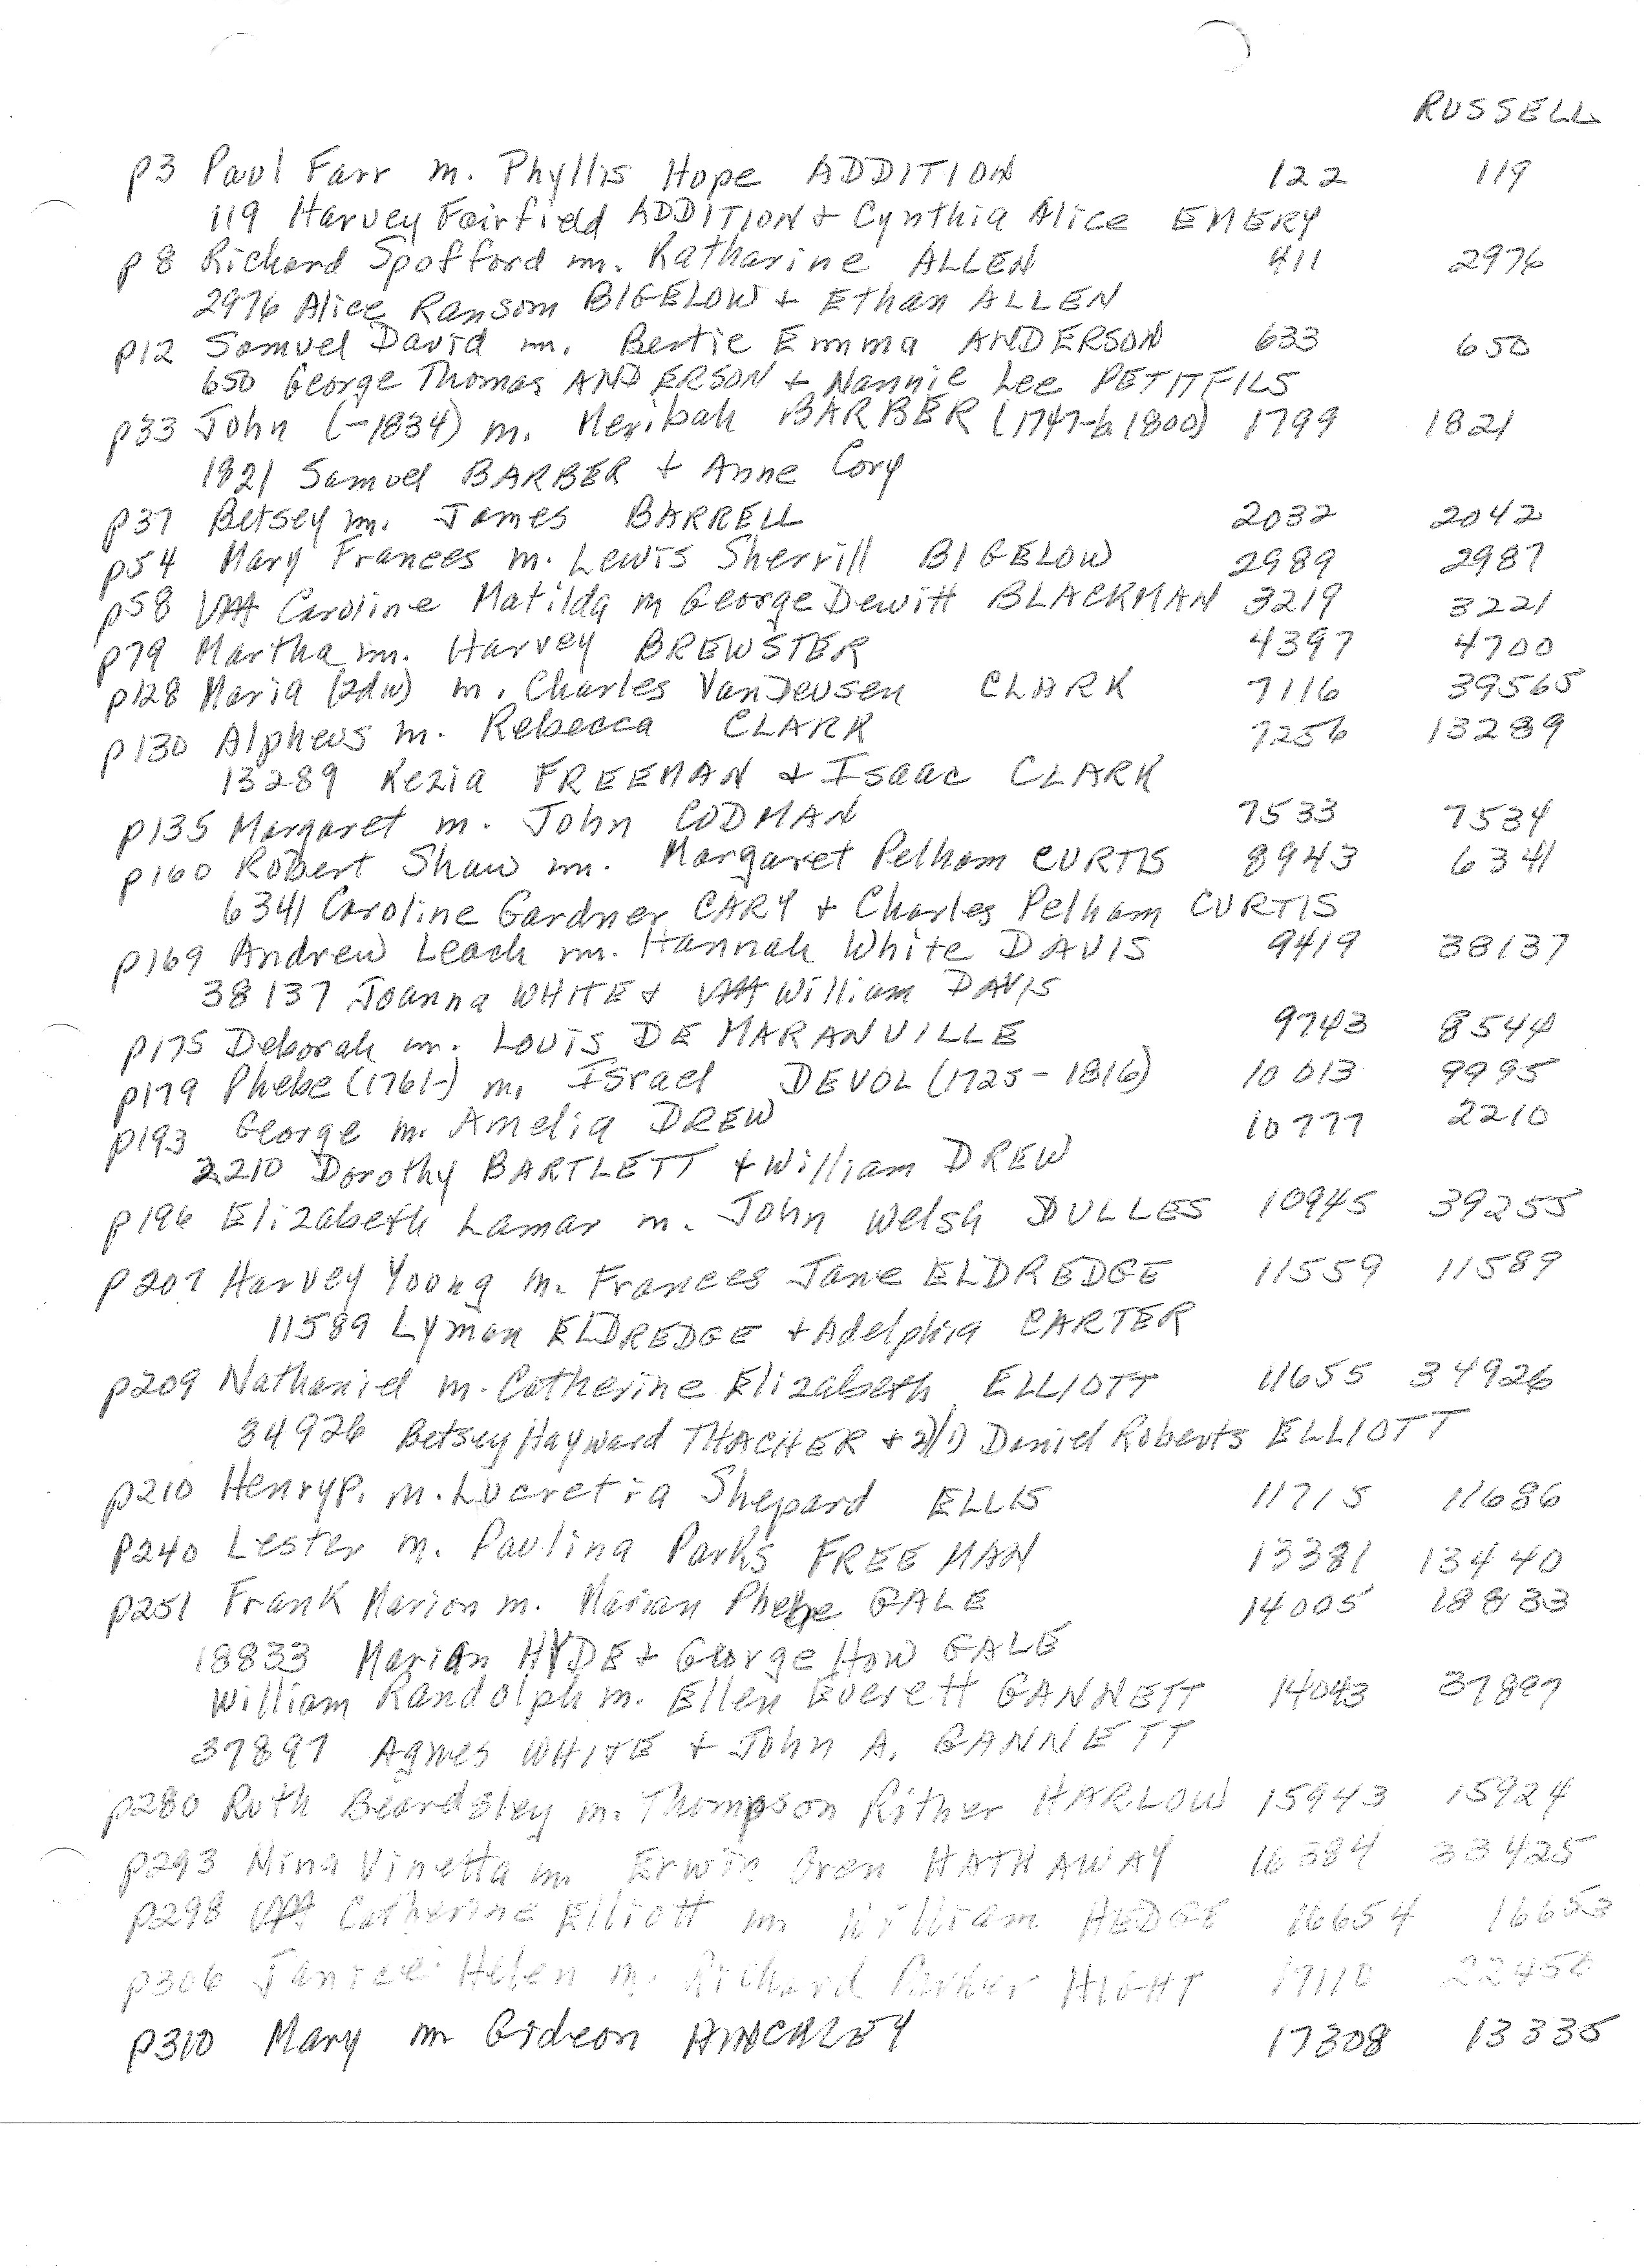 RUSSELL
p3 Paul Farr m. Phyllis Hope ADDITION 122 119
119 Harvey Fairfield ADDITION + Cynthia Alice EMERY
p8 Richard Spofford m. Katharine ALLEN 411 2976
2976 Alice Ransom BIGELOW + Ethan ALLEN
p12 Samuel David m. Bertie Emma ANDERSON 633 650
650 George Thomas ANDERSON + Nannie Lee PETITFILS
p33 John (-1834) m. Meribah BARBER (1747-b1800) 1799 1821
1821 Samuel BARBER + Anne Cory
p37 Betsey m. James BARRELL 2032 2042
p54 Mary Frances m. Lewis Sherrill BIGELOW 2989 2987
p58 Caroline Matilda m George Dewitt BLACKMAN 3219 3221
p79 Martha m. Harvey BREWSTER 4397 4700
p128 Maria (2dw) m. Charles VanDeusen CLARK 7116 39565
p130 Alpheus m. Rebecca CLARK 7256 13289
13289 Kezia FREEMAN + Isaac CLARK
p135 Margaret m. John CODMAN 7533 7534
p160 Robert Shaw m. Margaret Pelham CURTIS 8943 6341
6341 Caroline Gardner CARY + Charles Pelham CURTIS
p169 Andrew Leach m. Hannah White DAVIS 9419 38137
38137 Joanna WHITE + William DAVIS
p175 Deborah m. LOUIS DE MARANVILLE 9743 8544
p179 Phebe (1761-) m. Israel DEVOL (1725-1816) 10013 9995
p193 George m. Amelia DREW 10777 2210
2210 Dorothy BARTLETT + William DREW
p196 Elizabeth Lamar m. John Welsh DULLES 10945 39255
p207 Harvey Young m. Frances Jane ELDREDGE 11559 11589
11589 Lyman ELDREDGE + Adelphia CARTER
p209 Nathaniel m. Catherine Elizabeth ELLIOTT 11655 34926
34926 Betsey Hayward THACHER + 2/1) Daniel Roberts ELLIOTT
p210 Henry P. m. Lucretia Shepard ELLIS 11715 11686
p240 Lester m. Paulina Parks FREEMAN 13381 13440
p251 Frank Marion m. Marian Phebe GALE 14005 18833
18833 Marian HYDE + George How GALE
William Randolph m. Ellen Everett GANNETT 14043 37897
37897 Agnes WHITE + John A. GANNETT
p280 Ruth Beardsley m. Thompson Rither HARLOW 15943 15924
p293 Nina Vinetta m. Erwin Oren HATHAWAY 16384 33425
p298 Catherine Elliott m William HEDGE 16654 16653
p306 Janice Helen m. Richard Parker HIGHT 17110 22458
p310 Mary m Gideon HINCKLEY 17308 13335